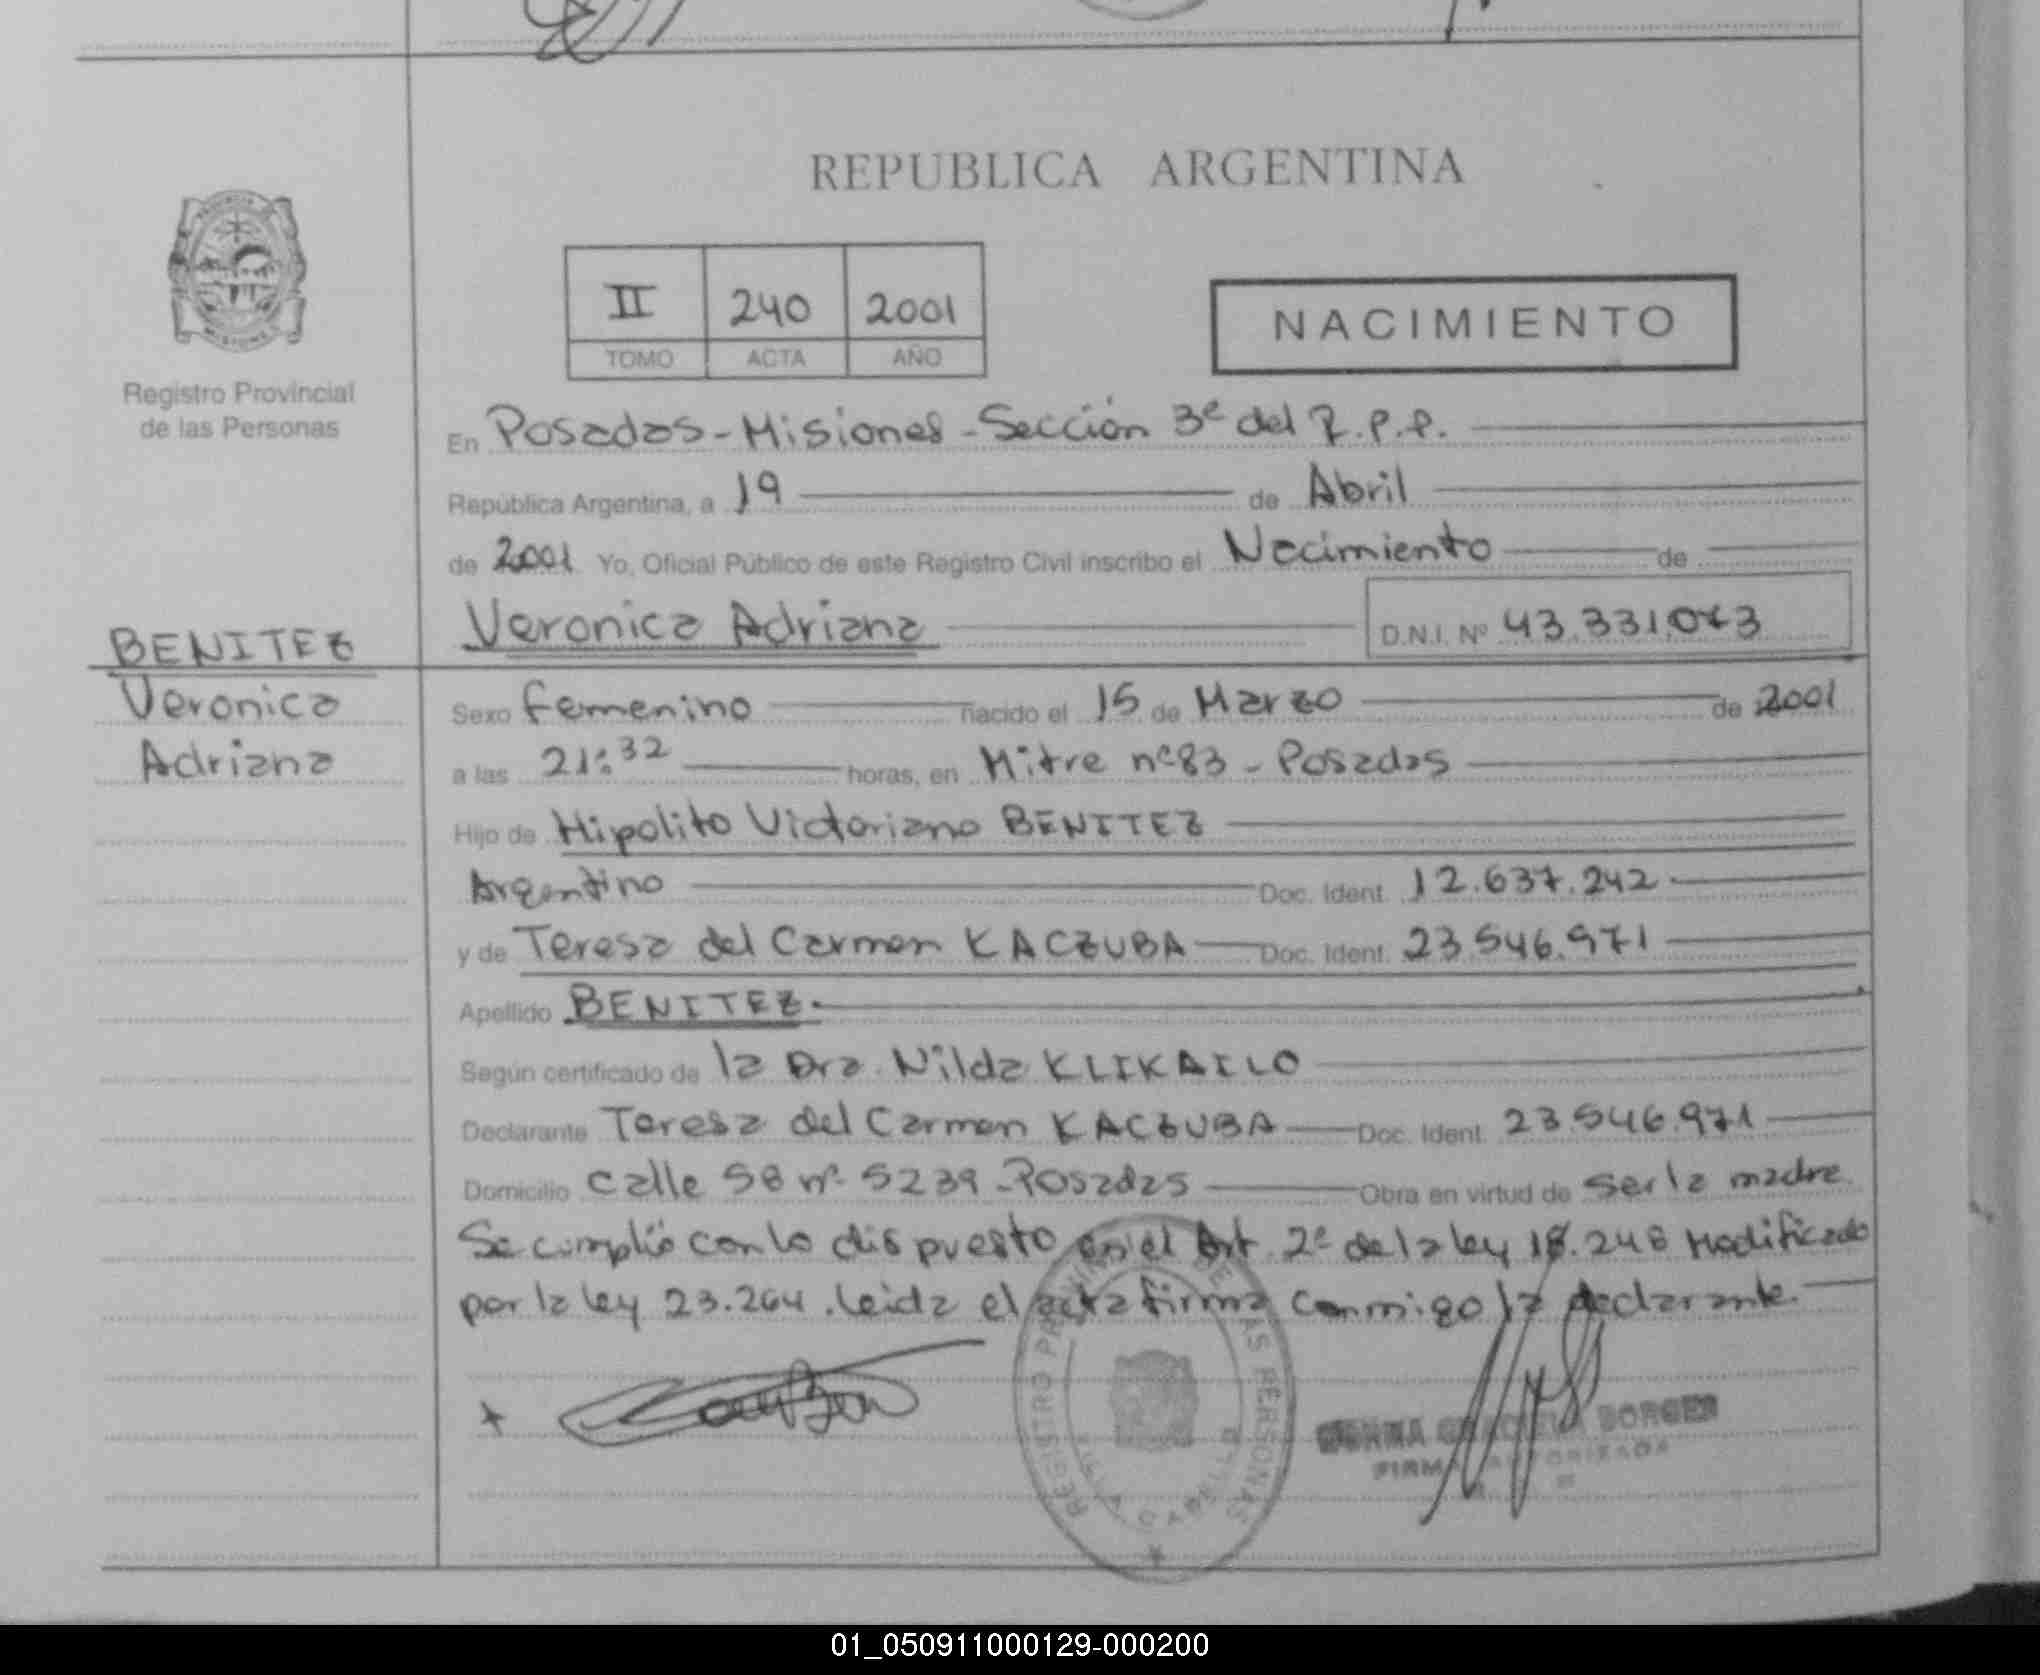 REPUBLICA ARGENTINA
II 240 2001
TOMO ACTA AÑO
NACIMIENTO
Registro Provincial
de las Personas
En Posadas - Misiones - Sección 3ª del R.P.P.
República Argentina, a 19 de Abril
de 2001 Yo, Oficial Público de este Registro Civil inscribo el Nacimiento de
Veronica Adriana D.N.I. Nº 43.331.073
BENITEZ
Veronica
Adriana
Sexo femenino nacido el 15 de Marzo de 2001
a las 21:32 horas, en Mitre nº 83 - Posadas
Hijo de Hipolito Victoriano BENITEZ
Argentino Doc. Ident. 12.637.242
y de Teresa del Carmen KACZUBA Doc. Ident. 23.546.971
Apellido BENITEZ.
Según certificado de la Dra. Nilda KLIKAILO
Declarante Teresa del Carmen KACZUBA Doc. Ident. 23.546.971
Domicilio calle 58 nº 5239 - Posadas Obra en virtud de ser la madre.
Se cumplió con lo dispuesto en el Art. 2º de la ley 18.248 Modificado
por la ley 23.264. Leida el acta firma conmigo la declarante.
REGISTRO PROVINCIAL DE LAS PERSONAS
GRACIELA BORGES
FIRMA AUTORIZADA
01_050911000129-000200